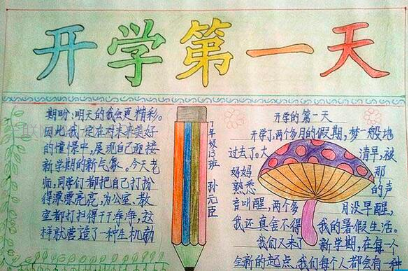 开学第一天
期盼,明天的我会更精彩。
因此,我一定在对未来美好
的憧憬中,展现自己迎接
新学期的新气象。今天老
师、同学们都把自己打扮
得漂漂亮亮,办公室、教
室都打扫得干干净净,这
样就营造了一种生机勃
孙元臣
开学的第一天
开学了,两个多月的假期,梦一般地
过去了。大清早,被
妈妈那
熟悉的声
音叫醒,两个多月没早醒,
我还真舍不得我的暑假生活。
我们又来了新学期,在每个
全新的起点,我们每个人都会有一种